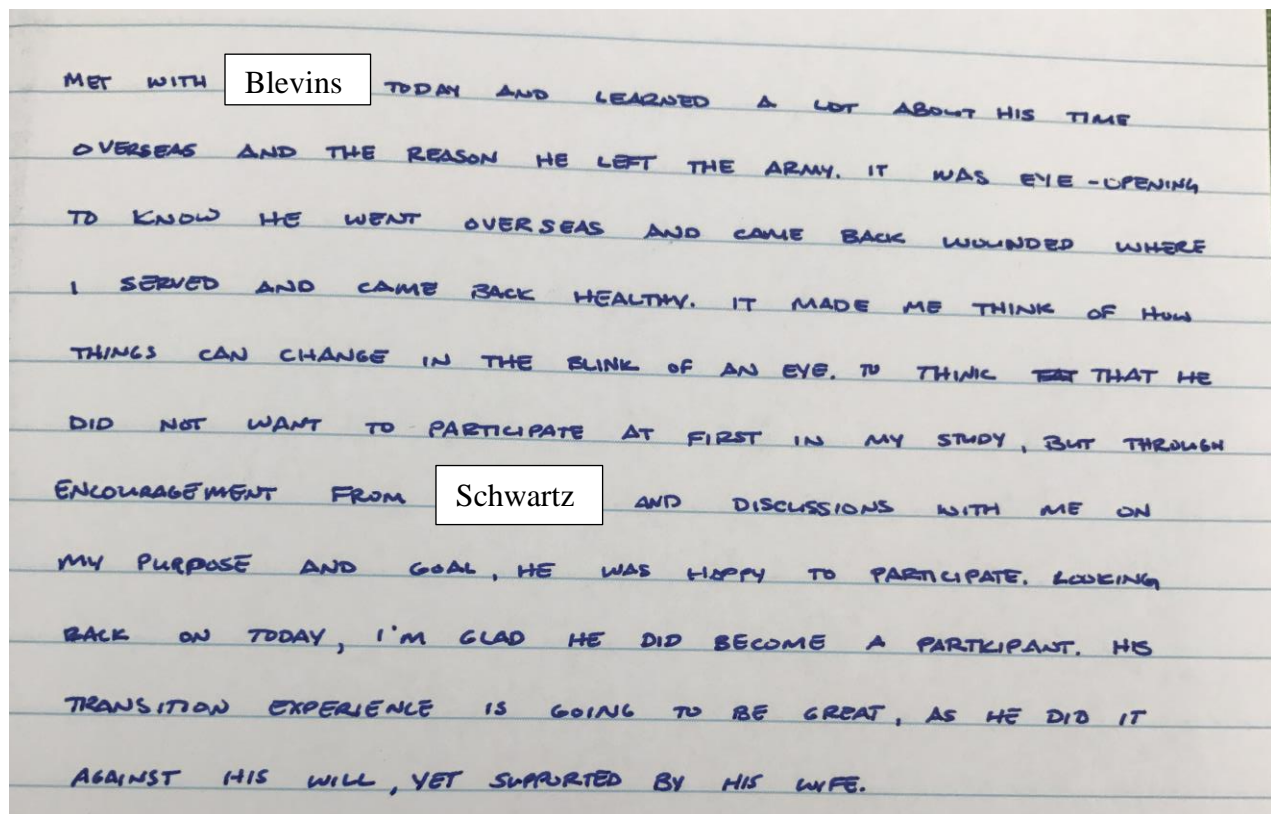 MET WITH Blevins TODAY AND LEARNED A LOT ABOUT HIS TIME
OVERSEAS AND THE REASON HE LEFT THE ARMY. IT WAS EYE-OPENING
TO KNOW HE WENT OVERSEAS AND CAME BACK WOUNDED WHERE
I SERVED AND CAME BACK HEALTHY. IT MADE ME THINK OF HOW
THINGS CAN CHANGE IN THE BLINK OF AN EYE. TO THINK THAT HE
DID NOT WANT TO PARTICIPATE AT FIRST IN MY STUDY, BUT THROUGH
ENCOURAGEMENT FROM Schwartz AND DISCUSSIONS WITH ME ON
MY PURPOSE AND GOAL, HE WAS HAPPY TO PARTICIPATE. LOOKING
BACK ON TODAY, I'M GLAD HE DID BECOME A PARTICIPANT. HIS
TRANSITION EXPERIENCE IS GOING TO BE GREAT, AS HE DID IT
AGAINST HIS WILL, YET SUPPORTED BY HIS WIFE.